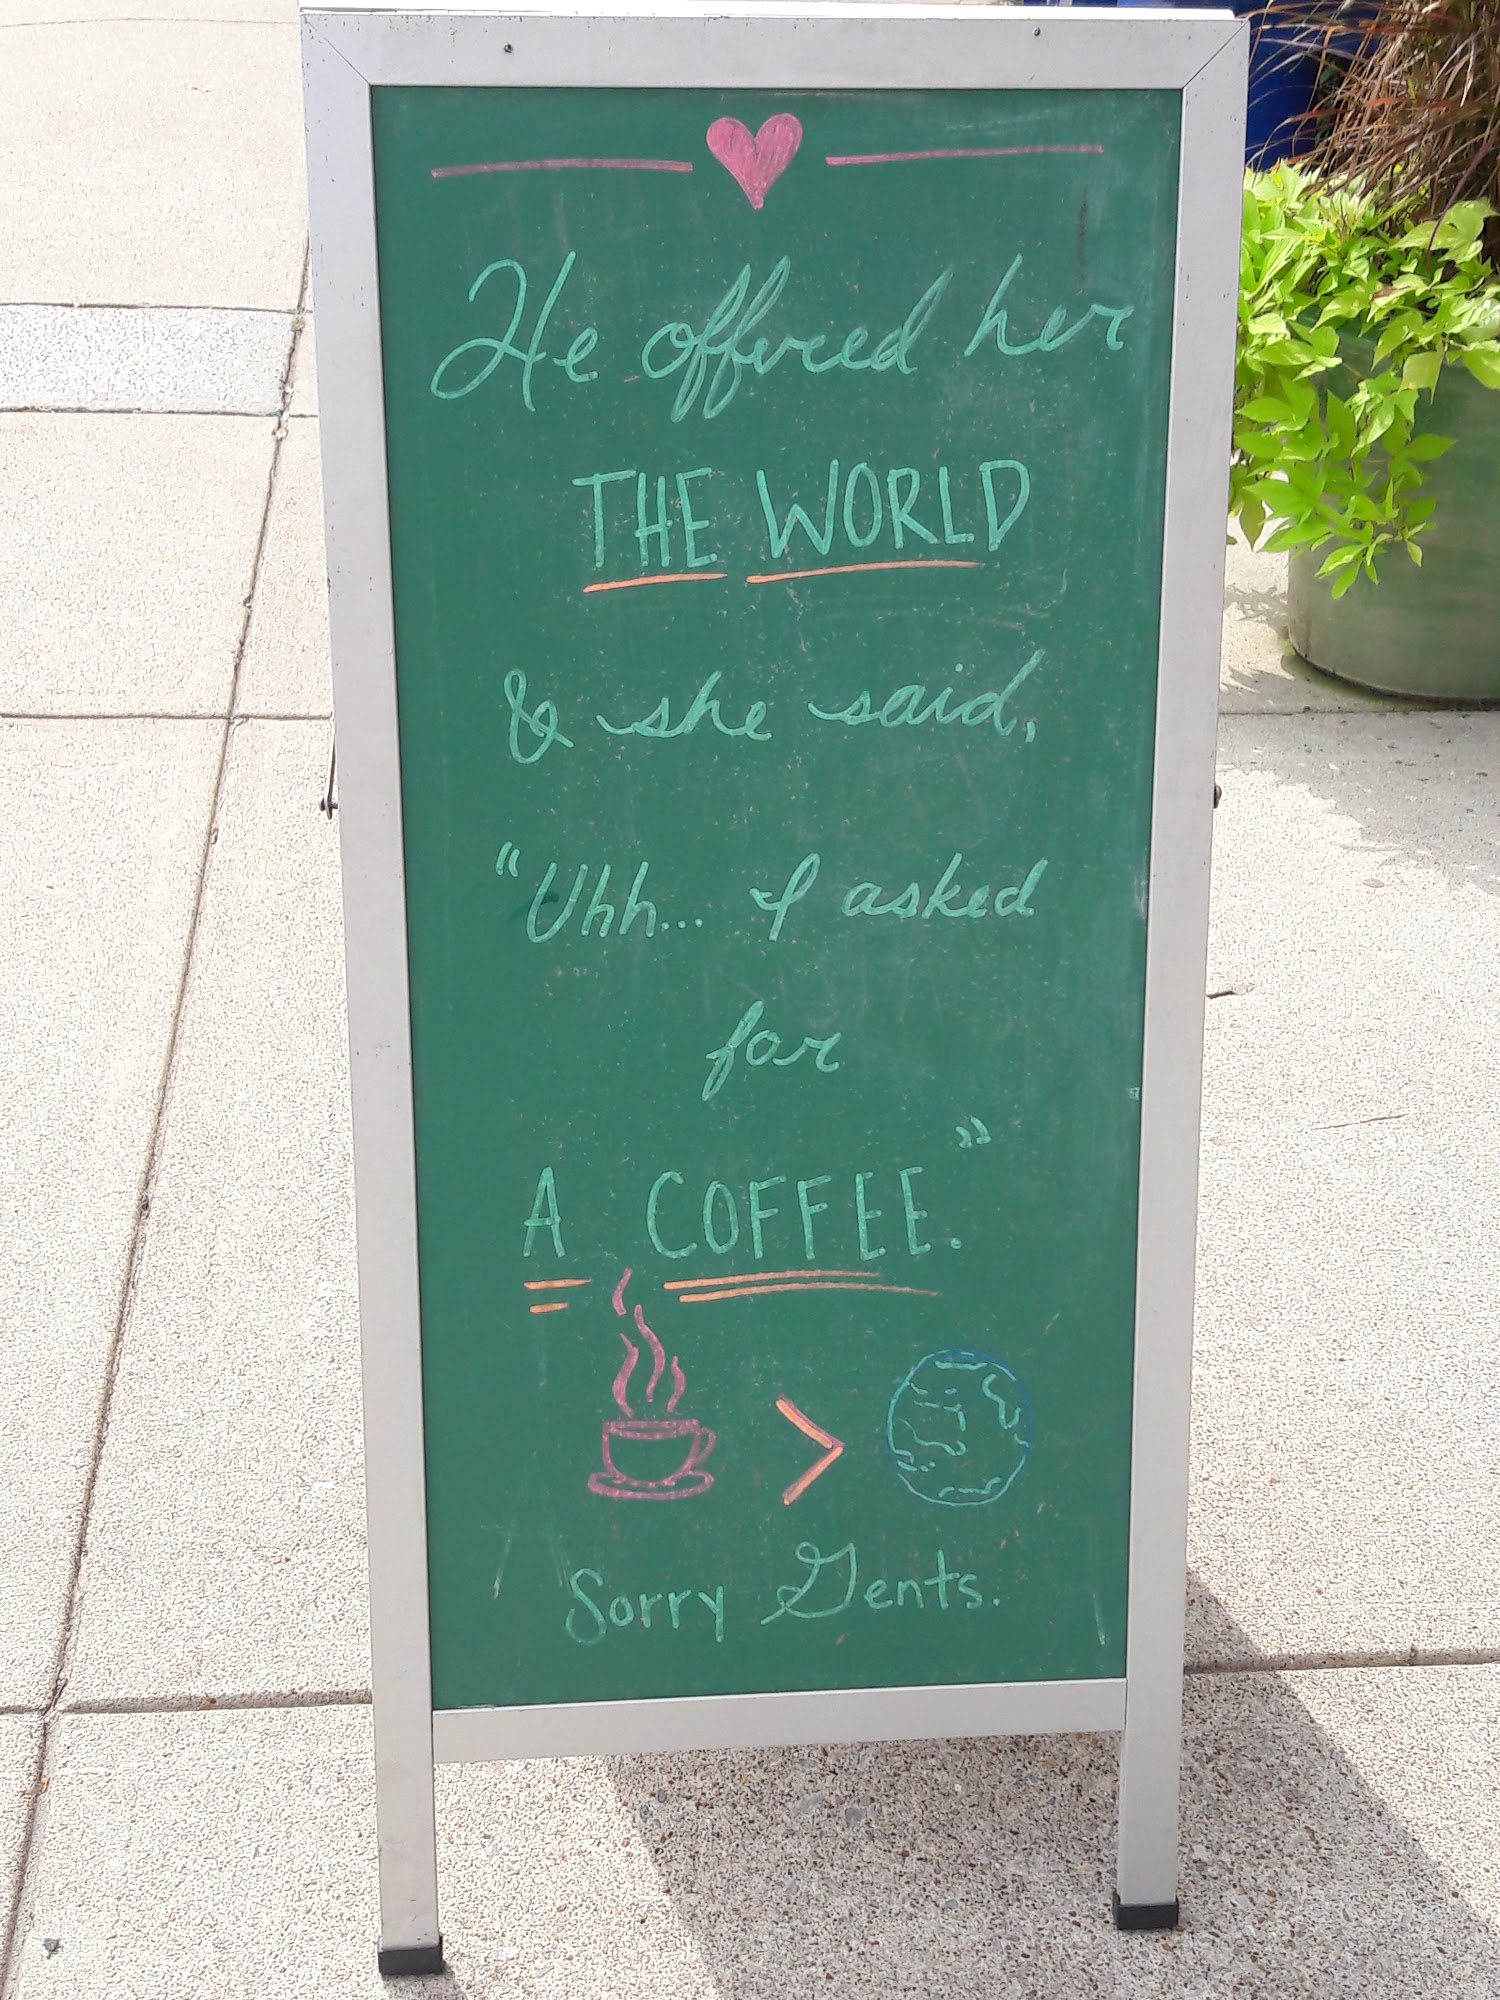 He offered her
THE WORLD
& she said,
"Uhh... I asked
for
A COFFEE."
>
Sorry Gents.